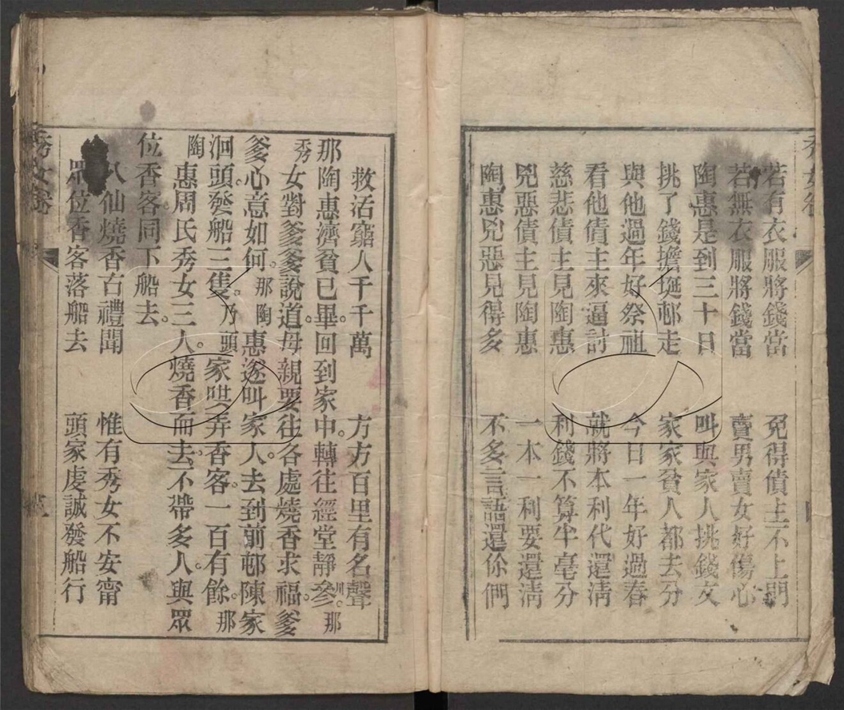 若有衣服將錢當 免得債主不上門
若無衣服將錢當 賣男賣女好傷心
陶惠是到三十日 叫與家人挑錢文
挑了錢擔挺邨走 家家貧人都去分
與他過年好祭祖 今日一年好過春
看他債主來逼討 就將本利代還淸
慈悲債主見陶惠 利錢不算半毫分
兇惡債主見陶惠 一本一利要還淸
陶惠兇惡見得多 不多言語還你們
救活窮人千千萬 方方百里有名聲
那陶惠濟貧已畢。回到家中。轉往經堂靜參。那
秀女對爹爹說道母親要往各處燒香求福。爹
爹心意如何。那陶惠遂叫家人。去到前邨陳家
洄頭發船三隻。乃頭家哄弄香客一百有餘。那
陶惠周氏秀女三人燒香而去。不帶多人。與眾
位香客同下船去。
八仙燒香古禮聞 惟有秀女不安甯
眾位香客落船去 頭家虔誠發船行
秀女卷